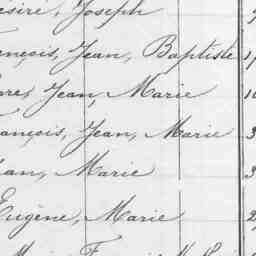 Désiré, Joseph
François, Jean, Baptiste
Jean, Marie
François, Jean, Marie
Jean, Marie
Eugène, Marie